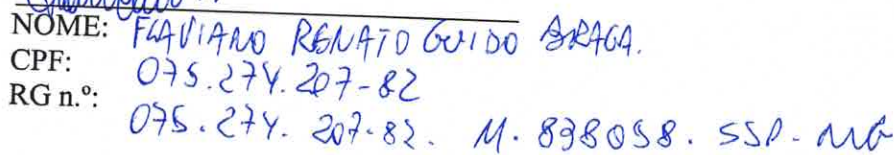 NOME: FLAVIANO RENATO GUIDO BRAGA.
CPF: 075.274.207-82
RG n.º: 075.274.207-82. M. 898058. SSP-MG